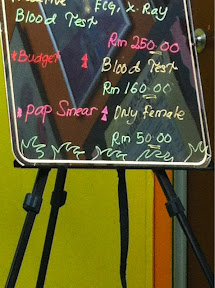 ECG, X-Ray
Blood Test
Rm 250.00
*Budget Blood Test
Rm 160.00
*Pap Smear Only female
Rm 50.00